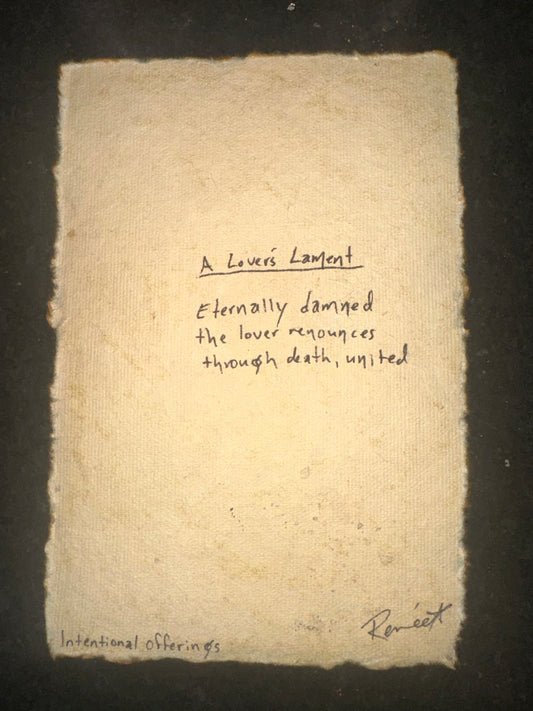 A Lover's Lament
Eternally damned
the lover renounces
through death, united
Intentional Offerings